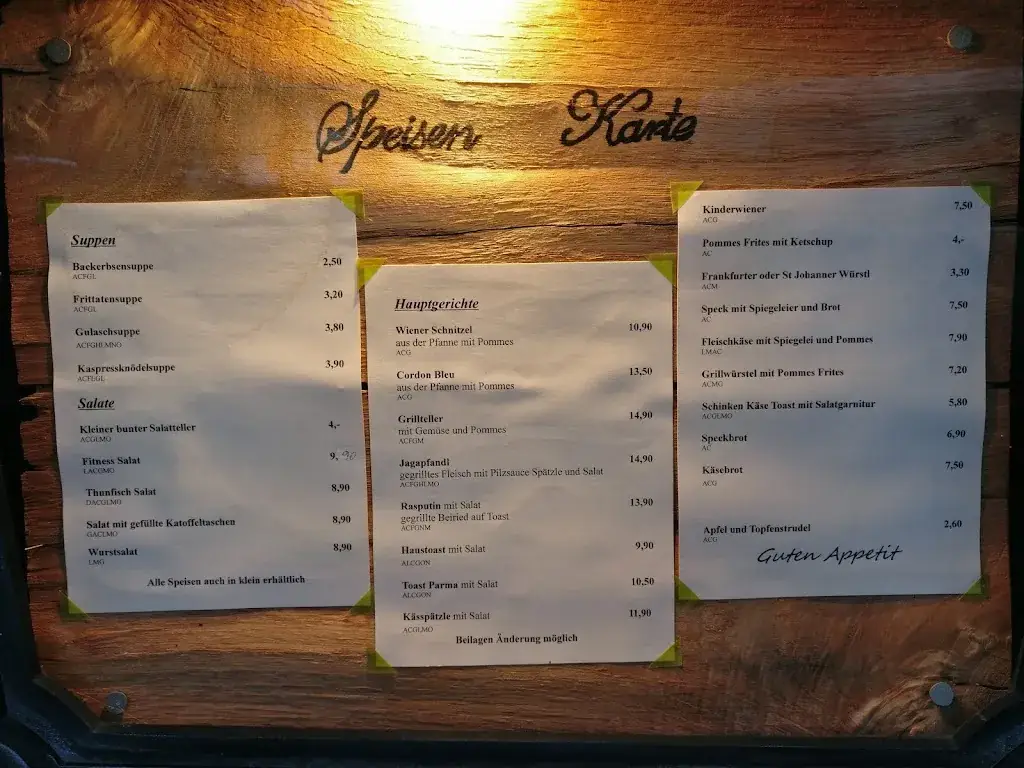 Speisen Karte
Suppen
Backerbsensuppe 2,50
ACFGL
Frittatensuppe 3,20
ACFGL
Gulaschsuppe 3,80
ACFGHLMNO
Kaspressknödelsuppe 3,90
ACFDGL
Salate
Kleiner bunter Salatteller 4,-
ACGLMO
Fitness Salat 9,90
LACGMO
Thunfisch Salat 8,90
DACGLMO
Salat mit gefüllte Katoffeltaschen 8,90
GACLMO
Wurstsalat 8,90
LMG
Alle Speisen auch in klein erhältlich
Hauptgerichte
Wiener Schnitzel 10,90
aus der Pfanne mit Pommes
ACG
Cordon Bleu 13,50
aus der Pfanne mit Pommes
ACG
Grillteller 14,90
mit Gemüse und Pommes
ACFGM
Jagapfandl 14,90
gegrilltes Fleisch mit Pilzsauce Spätzle und Salat
ACFGHLMO
Rasputin mit Salat 13,90
gegrillte Beiried auf Toast
ACFGNM
Haustoast mit Salat 9,90
ALCGON
Toast Parma mit Salat 10,50
ALCGON
Kässpätzle mit Salat 11,90
ACGLMO
Beilagen Änderung möglich
Kinderwiener 7,50
ACG
Pommes Frites mit Ketschup 4,-
AC
Frankfurter oder St Johanner Würstl 3,30
ACM
Speck mit Spiegeleier und Brot 7,50
AC
Fleischkäse mit Spiegelei und Pommes 7,90
LMAC
Grillwürstel mit Pommes Frites 7,20
ACMG
Schinken Käse Toast mit Salatgarnitur 5,80
ACGLMO
Speckbrot 6,90
AC
Käsebrot 7,50
ACG
Apfel und Topfenstrudel 2,60
ACG
Guten Appetit